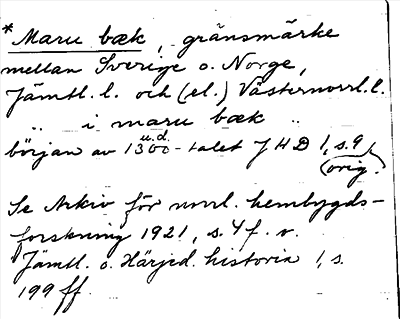 *Maru bæk, gränsmärke
mellan Sverige o. Norge,
Jämtl. l. och (el.) Västernorrl. l.
„ i maru bæk „
u.d.
början av 1300-talet JHD 1, s. 9
(orig.)
Se Arkiv för norrl. hembygds-
forskning 1921, s. 4 f. v.
Jämtl. o. Härjed. historia 1, s.
199 ff.